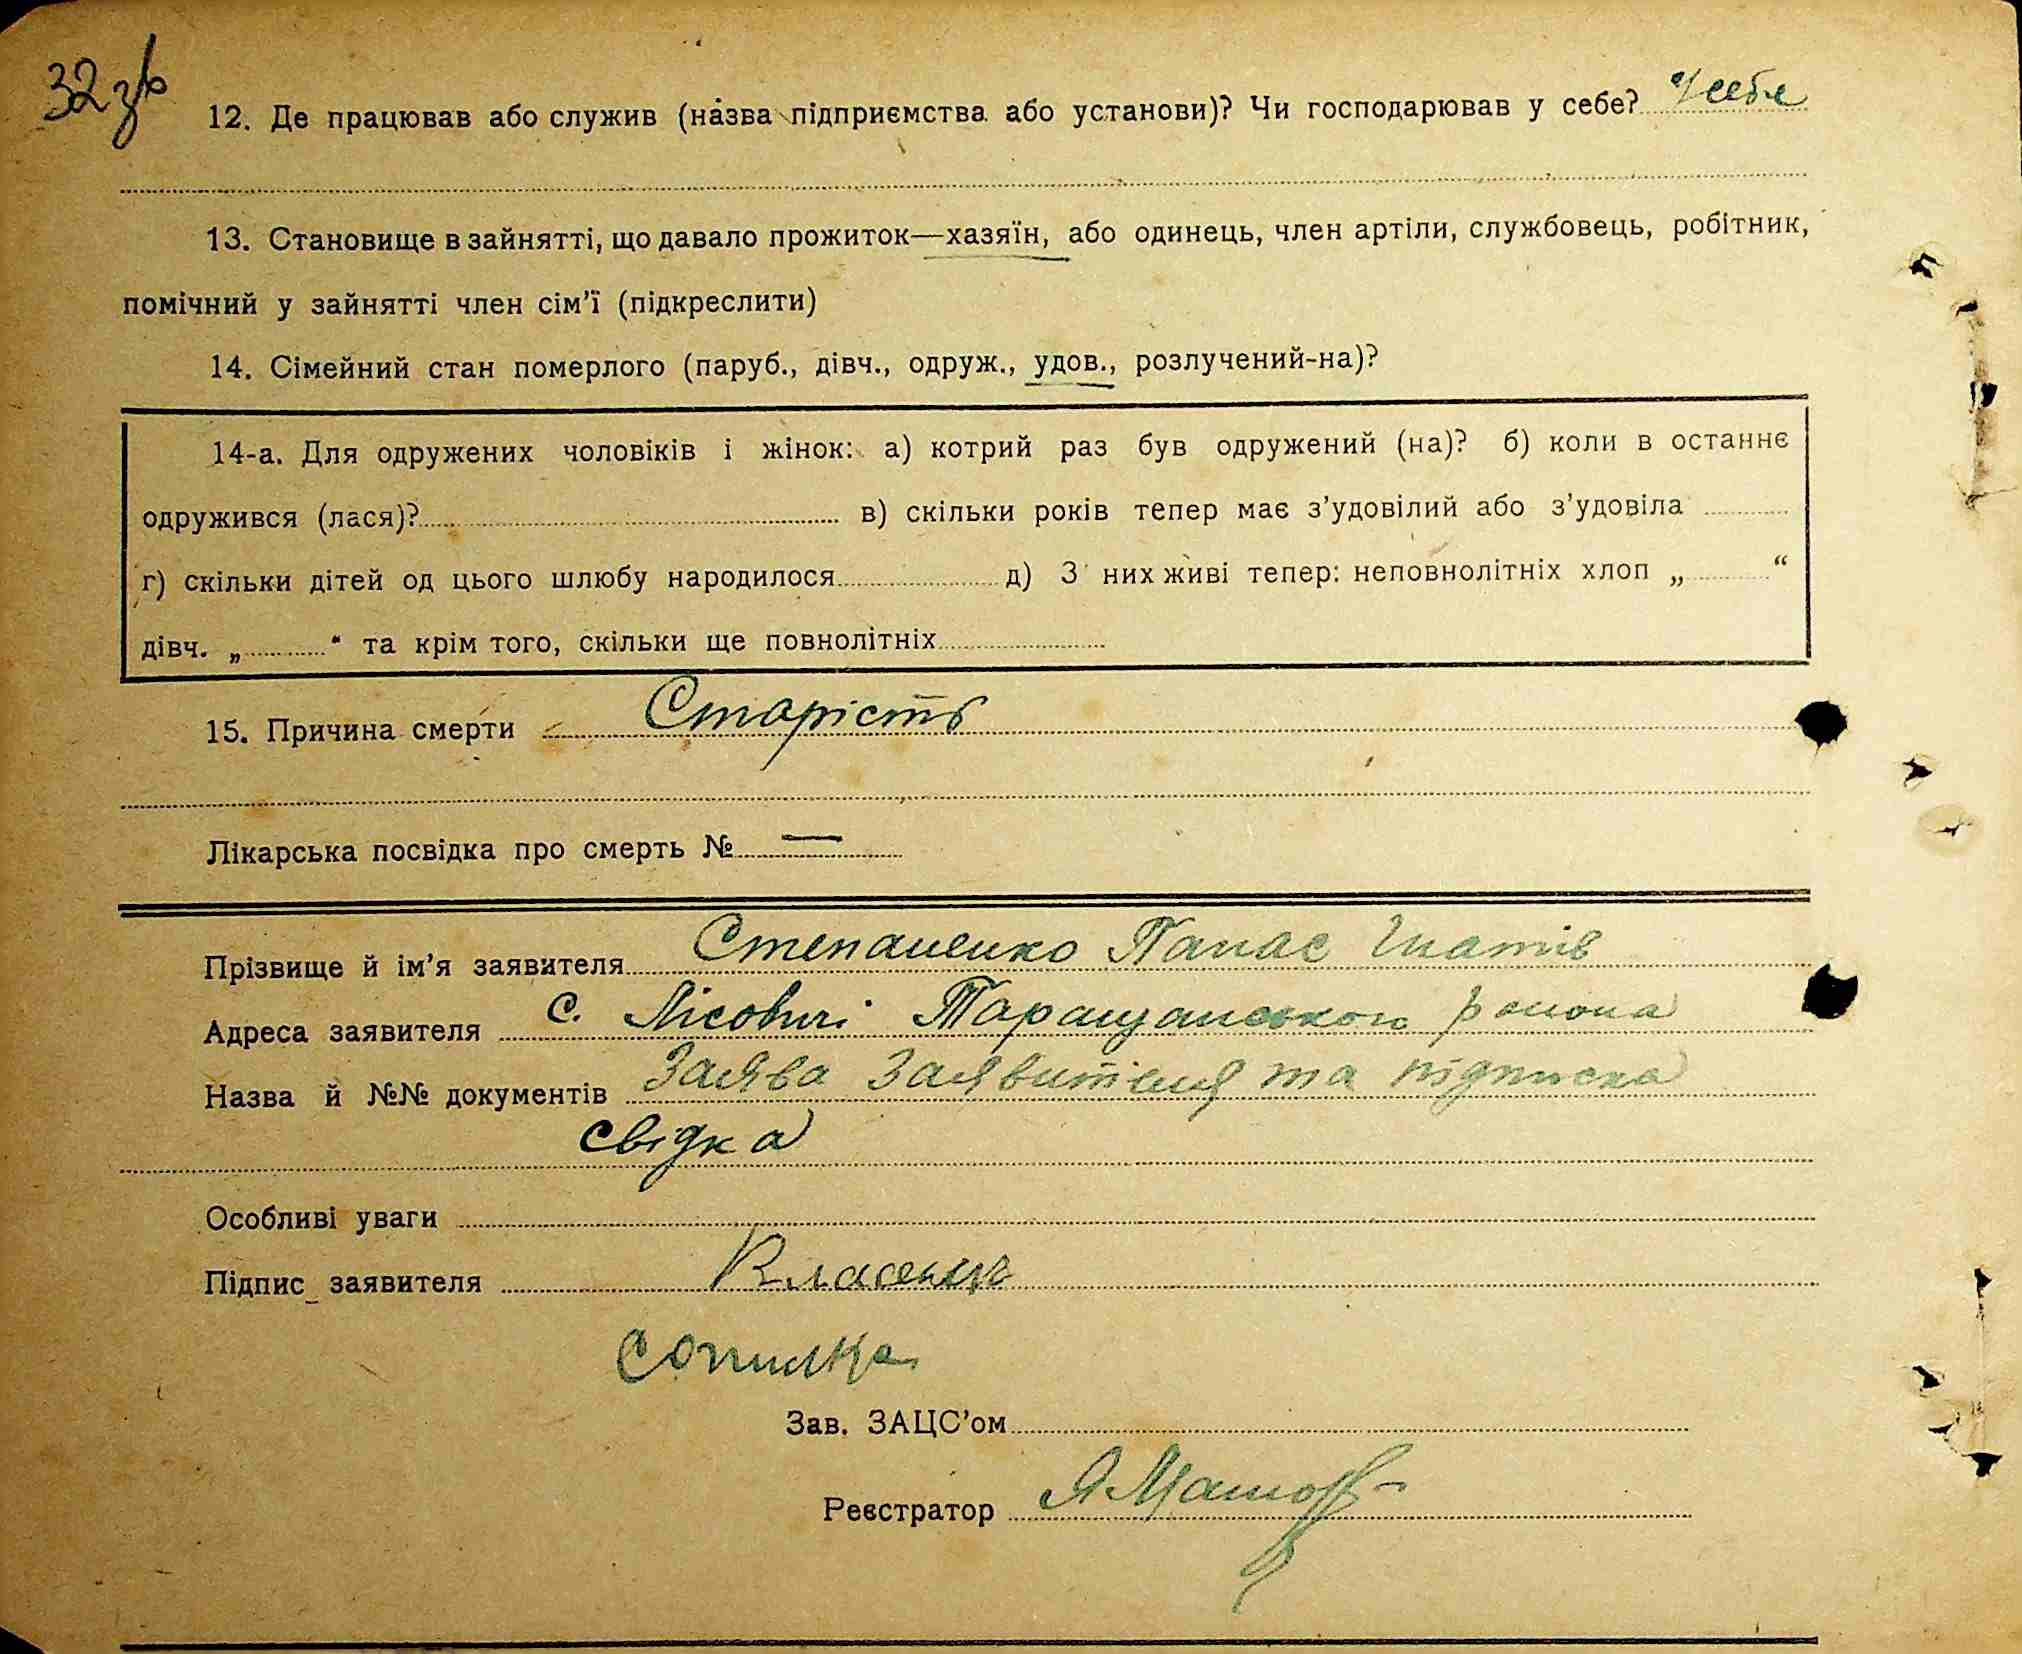 32 зв
12. Де працював або служив (назва підприємства або установи)? Чи господарював у себе? У себе
13. Становище в зайнятті, що давало прожиток—хазяїн, або одинець, член артіли, службовець, робітник,
помічний у зайнятті член сім'ї (підкреслити)
14. Сімейний стан померлого (паруб., дівч., одруж., удов., розлучений-на)?
14-а. Для одружених чоловіків і жінок: а) котрий раз був одружений (на)? б) коли в останнє
одружився (лася)? в) скільки років тепер має з'удовілий або з'удовіла
г) скільки дітей од цього шлюбу народилося д) З них живі тепер: неповнолітніх хлоп „ “
дівч. „ “ та крім того, скільки ще повнолітніх
15. Причина смерти Старість
Лікарська посвідка про смерть № —
Прізвище й ім'я заявителя Степаненко Панас Гнатів
Адреса заявителя с. Лісовичі Таращанського района
Назва й №№ документів Заява Заявителя та підписка
свідка
Особливі уваги
Підпис заявителя
Зав. ЗАЦС'ом
Реєстратор